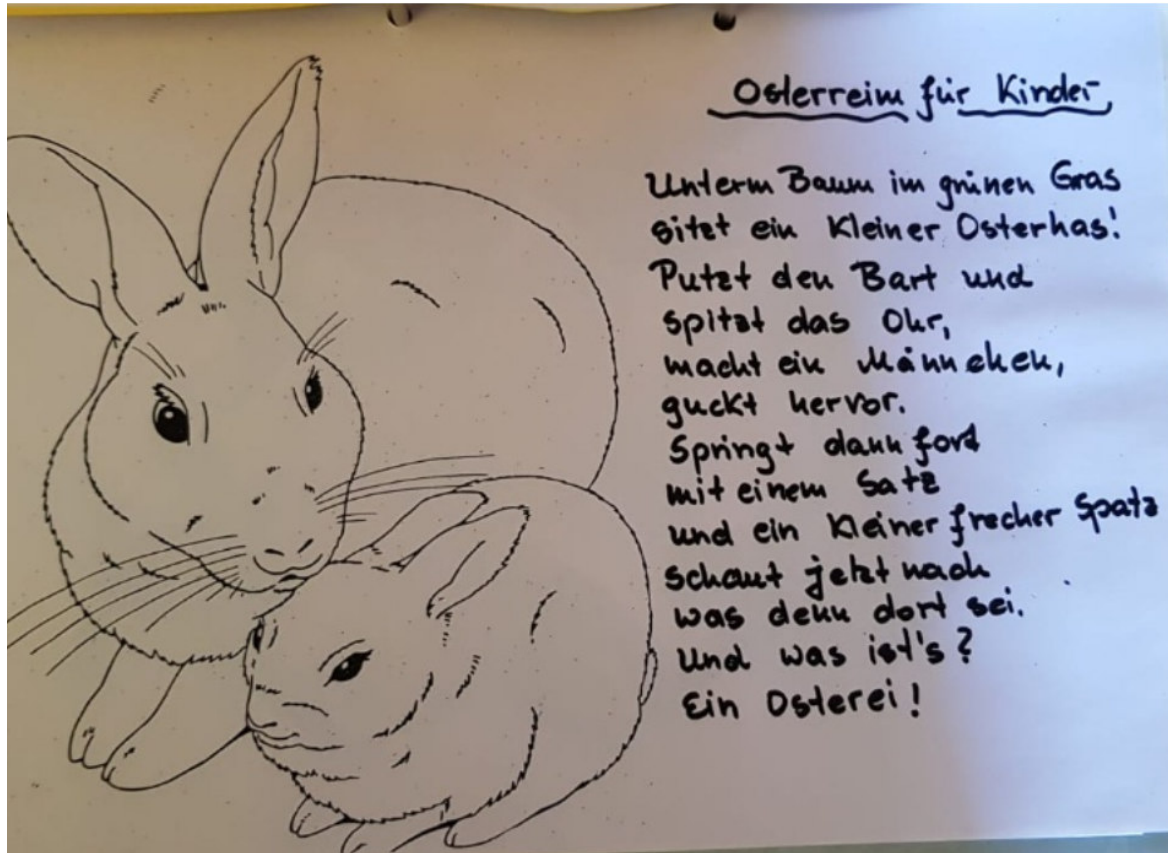 Osterreim für Kinder
Unterm Baum im grünen Gras
sitzt ein Kleiner Osterhas!
Putzt den Bart und
spitzt das Ohr,
macht ein Männchen,
guckt hervor.
Springt dann fort
mit einem Satz
und ein Kleiner frecher Spatz
schaut jetzt nach
was denn dort sei.
Und was ist's?
Ein Osterei!